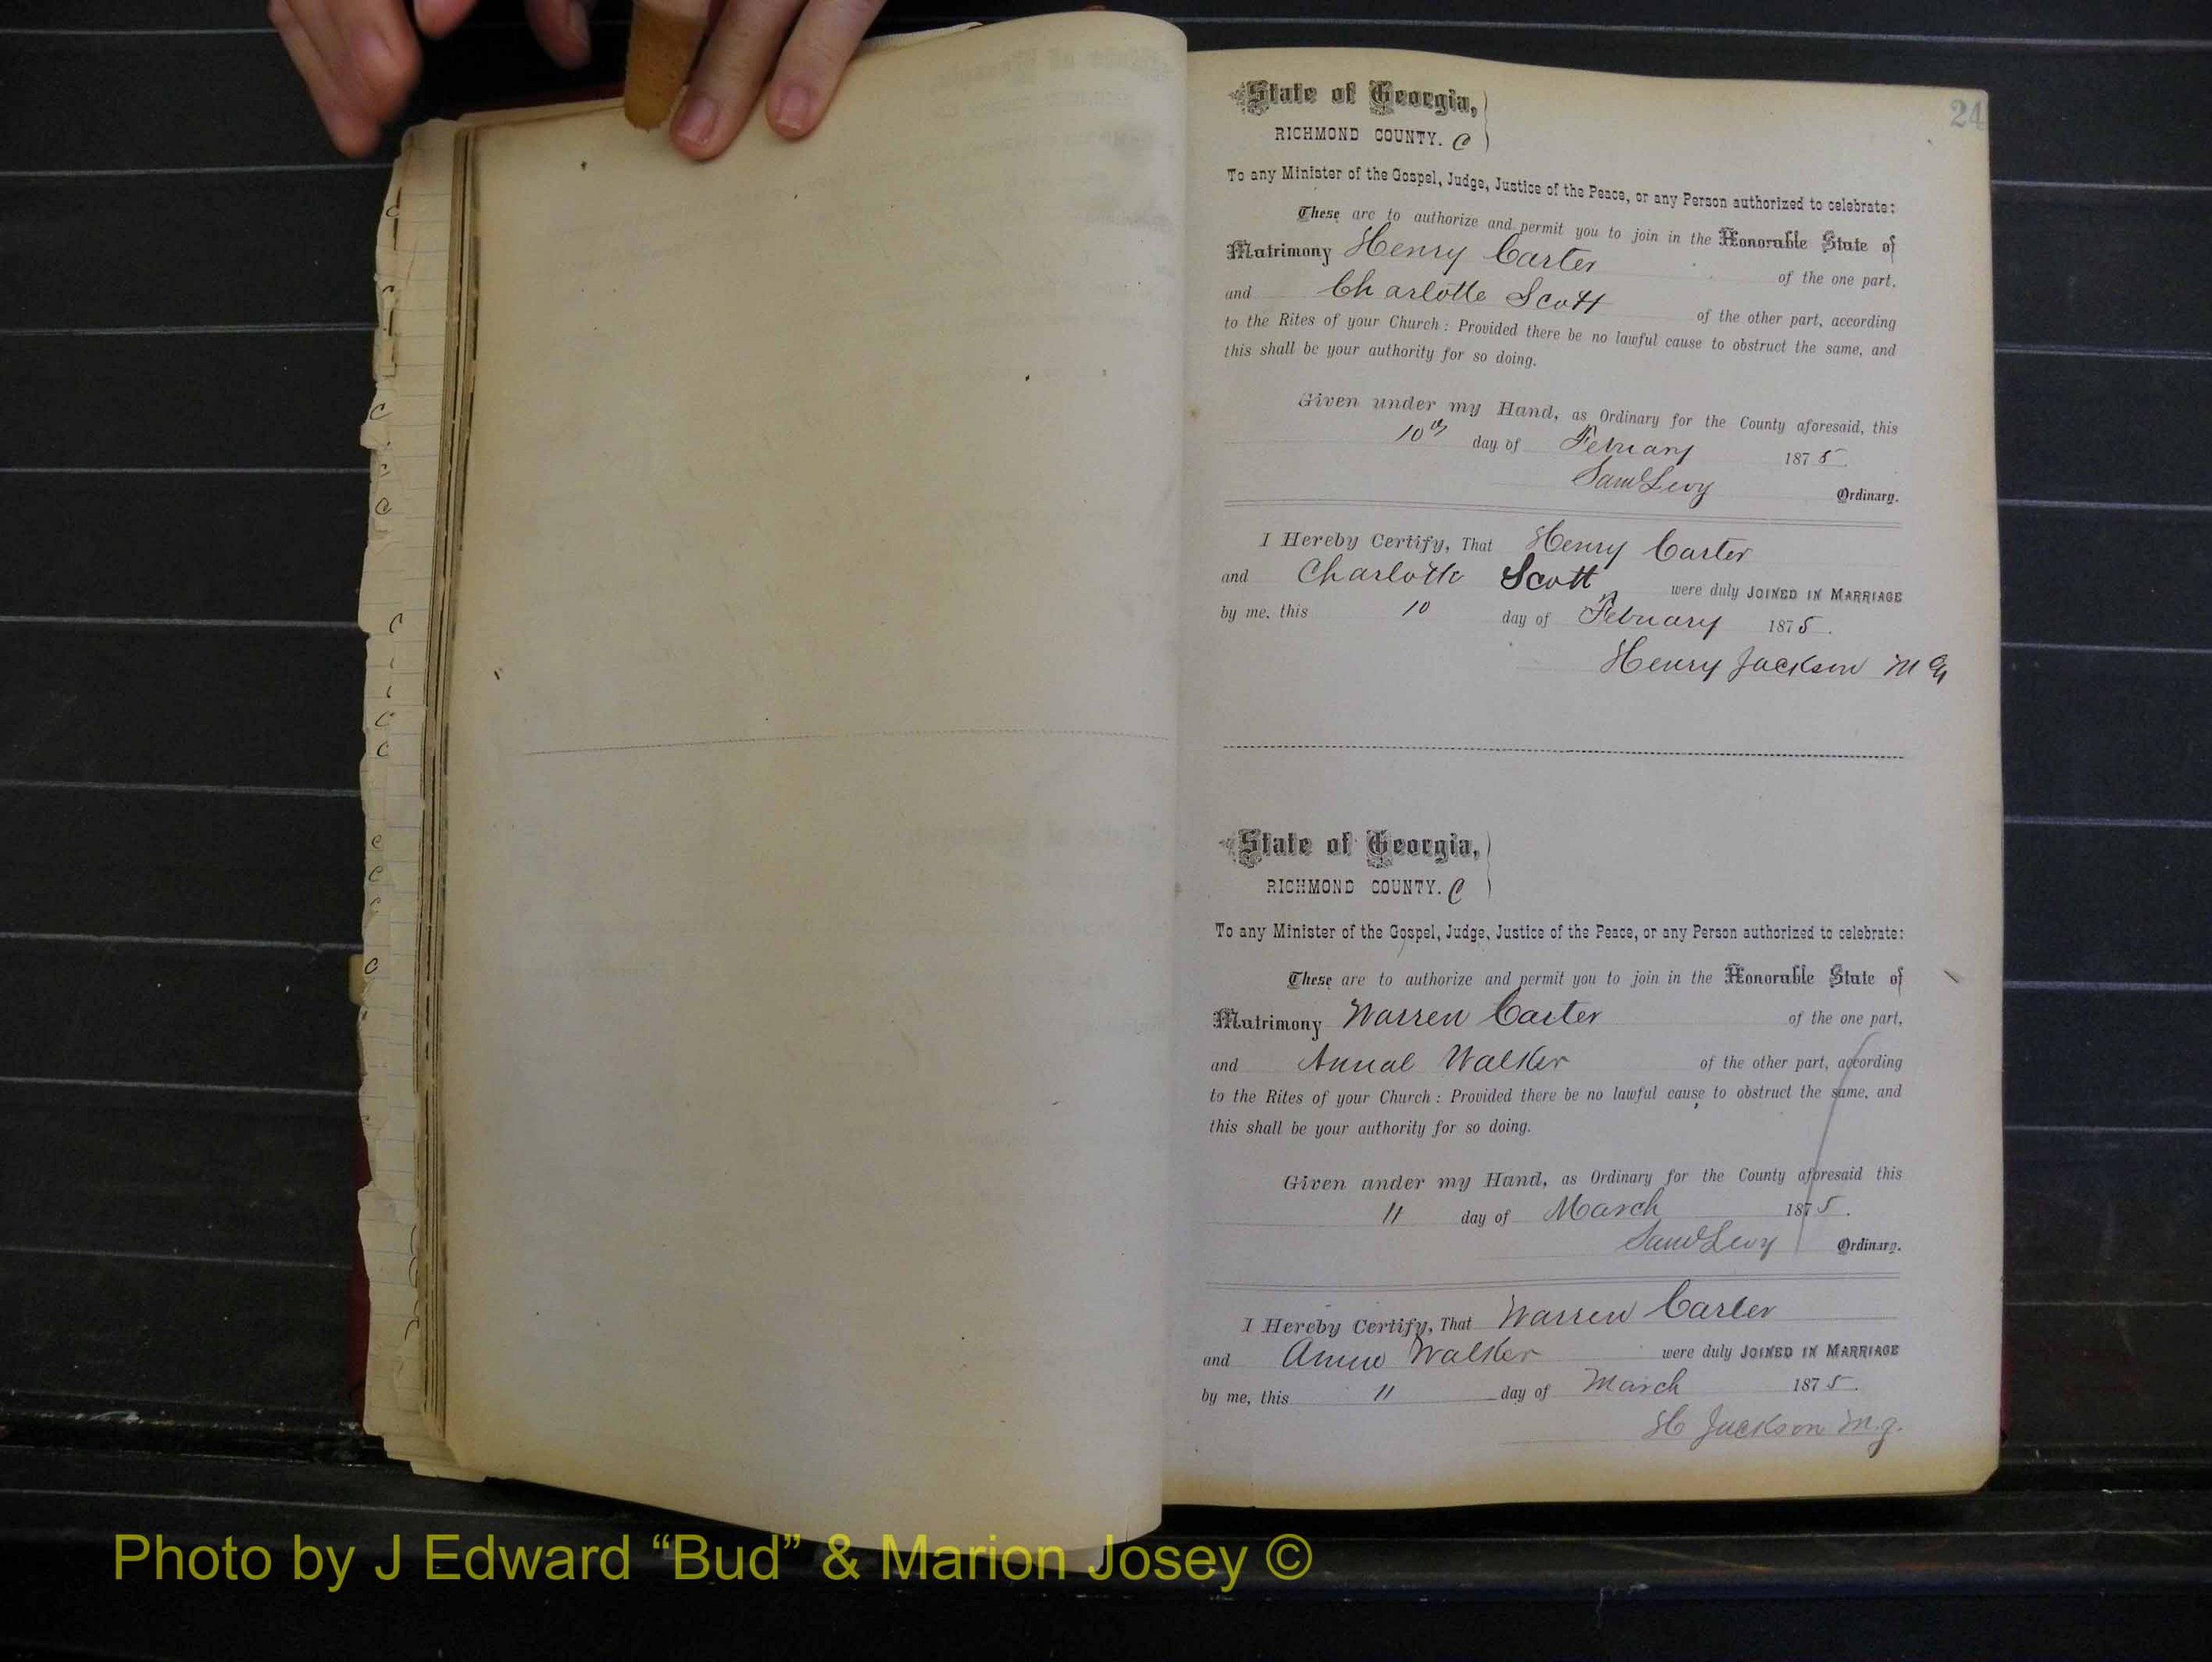 24
State of Georgia,
RICHMOND COUNTY. C
To any Minister of the Gospel, Judge, Justice of the Peace, or any Person authorized to celebrate:
These are to authorize and permit you to join in the Honorable State of
Matrimony Henry Carter of the one part,
and Charlotte Scott of the other part, according
to the Rites of your Church: Provided there be no lawful cause to obstruct the same, and
this shall be your authority for so doing.
Given under my Hand, as Ordinary for the County aforesaid, this
10th day of Febuary 1875.
Saml Levy Ordinary.
I Hereby Certify, That Henry Carter
and Charlotte Scott were duly JOINED IN MARRIAGE
by me, this 10 day of Febuary 1875.
Henry Jackson M G
State of Georgia,
RICHMOND COUNTY. C
To any Minister of the Gospel, Judge, Justice of the Peace, or any Person authorized to celebrate:
These are to authorize and permit you to join in the Honorable State of
Matrimony Warren Carter of the one part,
and Annal Walker of the other part, according
to the Rites of your Church: Provided there be no lawful cause to obstruct the same, and
this shall be your authority for so doing.
Given under my Hand, as Ordinary for the County aforesaid this
11 day of March 1875.
Saml Levy Ordinary.
I Hereby Certify, That Warren Carter
and Walker were duly JOINED IN MARRIAGE
by me, this 11 day of March 1875.
H Jackson M.g.
Photo by J Edward “Bud” & Marion Josey ©